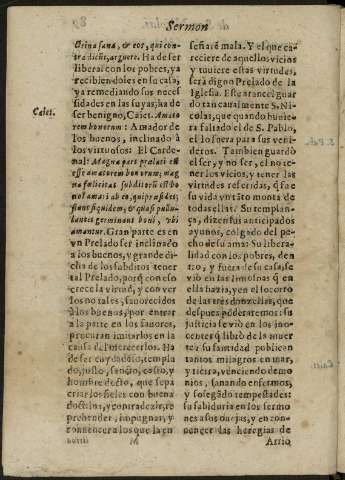 Sermon
Caiet.
Ctrina sana, & eos, qui con-
tradicũt, arguere. Ha de ser
liberal con los pobres, ya
recibiendoles en su casa,
ya remediando sus nece
sidades en las suyas; ha de
ser benigno, Caiet. Amato
rem bonorum: Amador de
los buenos, inclinado à
los virtuosos. El Carde-
nal: Magna pars prælati est
esse amatorem bonorum; mag
na felicitas subditorũ est bo
nos amari ab eo, qui præsidet;
fiunt siquidem, & quasi pullu-
lantes germinant boni, vbi
amantur. Gran parte es en
vn Prelado ser inclinado
à los buenos, y grande di-
cha de los subditos tener
tal Prelado, porq̃ con eso
crece la virtud, y con ver
los no tales, fauorecidos
à los buenos, por entrar
à la parte en los fauores,
procuran imitarlos en la
causa del merecerlos. Ha
de ser cuydadoso, templa
do, justo, santo, casto, y
hombre docto, que sepa
criar los fieles con buena
doctrina, y contradezir, re
prehender, impugnar, y
conuencer a los que la en
señarẽ mala. Y el que ca-
reciere de aquellos vicios
y tuuiere estas virtudes,
serà digno Prelado de la
Iglesia. Este arancel guar
do tan caualmente S. Ni-
colas, que quando huuie
ra faltado el de S. Pablo,
el lo fuera para sus veni-
deros. Tambien guardò
el ser, y no ser, el no te-
ner los vicios, y tener las
virtudes referidas, q̃ fue
su vida vn tãto monta de
todas ellas. Su templan-
ça, dizen sus anticipados
ayunos, colgado del pe-
cho de su ama: Su libera-
lidad con los pobres, den
tro, y fuera de su casa, se
vio en las limosnas q̃ en
ella hazia, y en el socorro
de las tres donzellas, que
despues põderaremos: su
justicia se viò en los ino-
centes q̃ librò de la muer
te: su santidad publican
tantos milagros en mar,
y tierra, venciendo demo
nios, sanando enfermos,
y sosegando tempestades:
su sabiduria en los sermo
nes a sus ouejas, y en con-
uencer las heregias de
M
Arrio